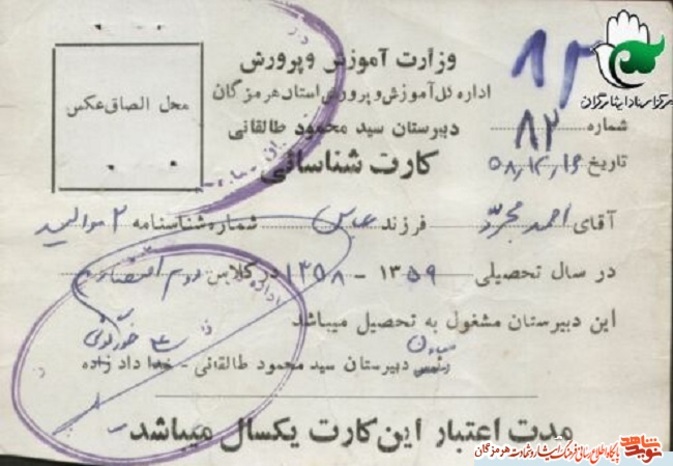 وزارت آموزش و پرورش
۸۲
اداره کل آموزش و پرورش استان هرمزگان
مرکز اسناد ایثارگران
محل الصاق عکس
دبیرستان سید محمود طالقانی
شماره ۸۲
کارت شناسائی
تاریخ ۵۸,۱۲,۱۶
آقای احمد مجرد فرزند عباس شماره شناسنامه ۲
در سال تحصیلی ۱۳۵۹ - ۱۳۵۸ در کلاس دوم اقتصاد
این دبیرستان مشغول به تحصیل میباشد
رئیس دبیرستان سید محمود طالقانی - خدا داد زاده
مدت اعتبار این کارت یکسال میباشد
نوید شاهد
پایگاه اطلاع رسانی فرهنگ ایثار و شهادت هرمزگان